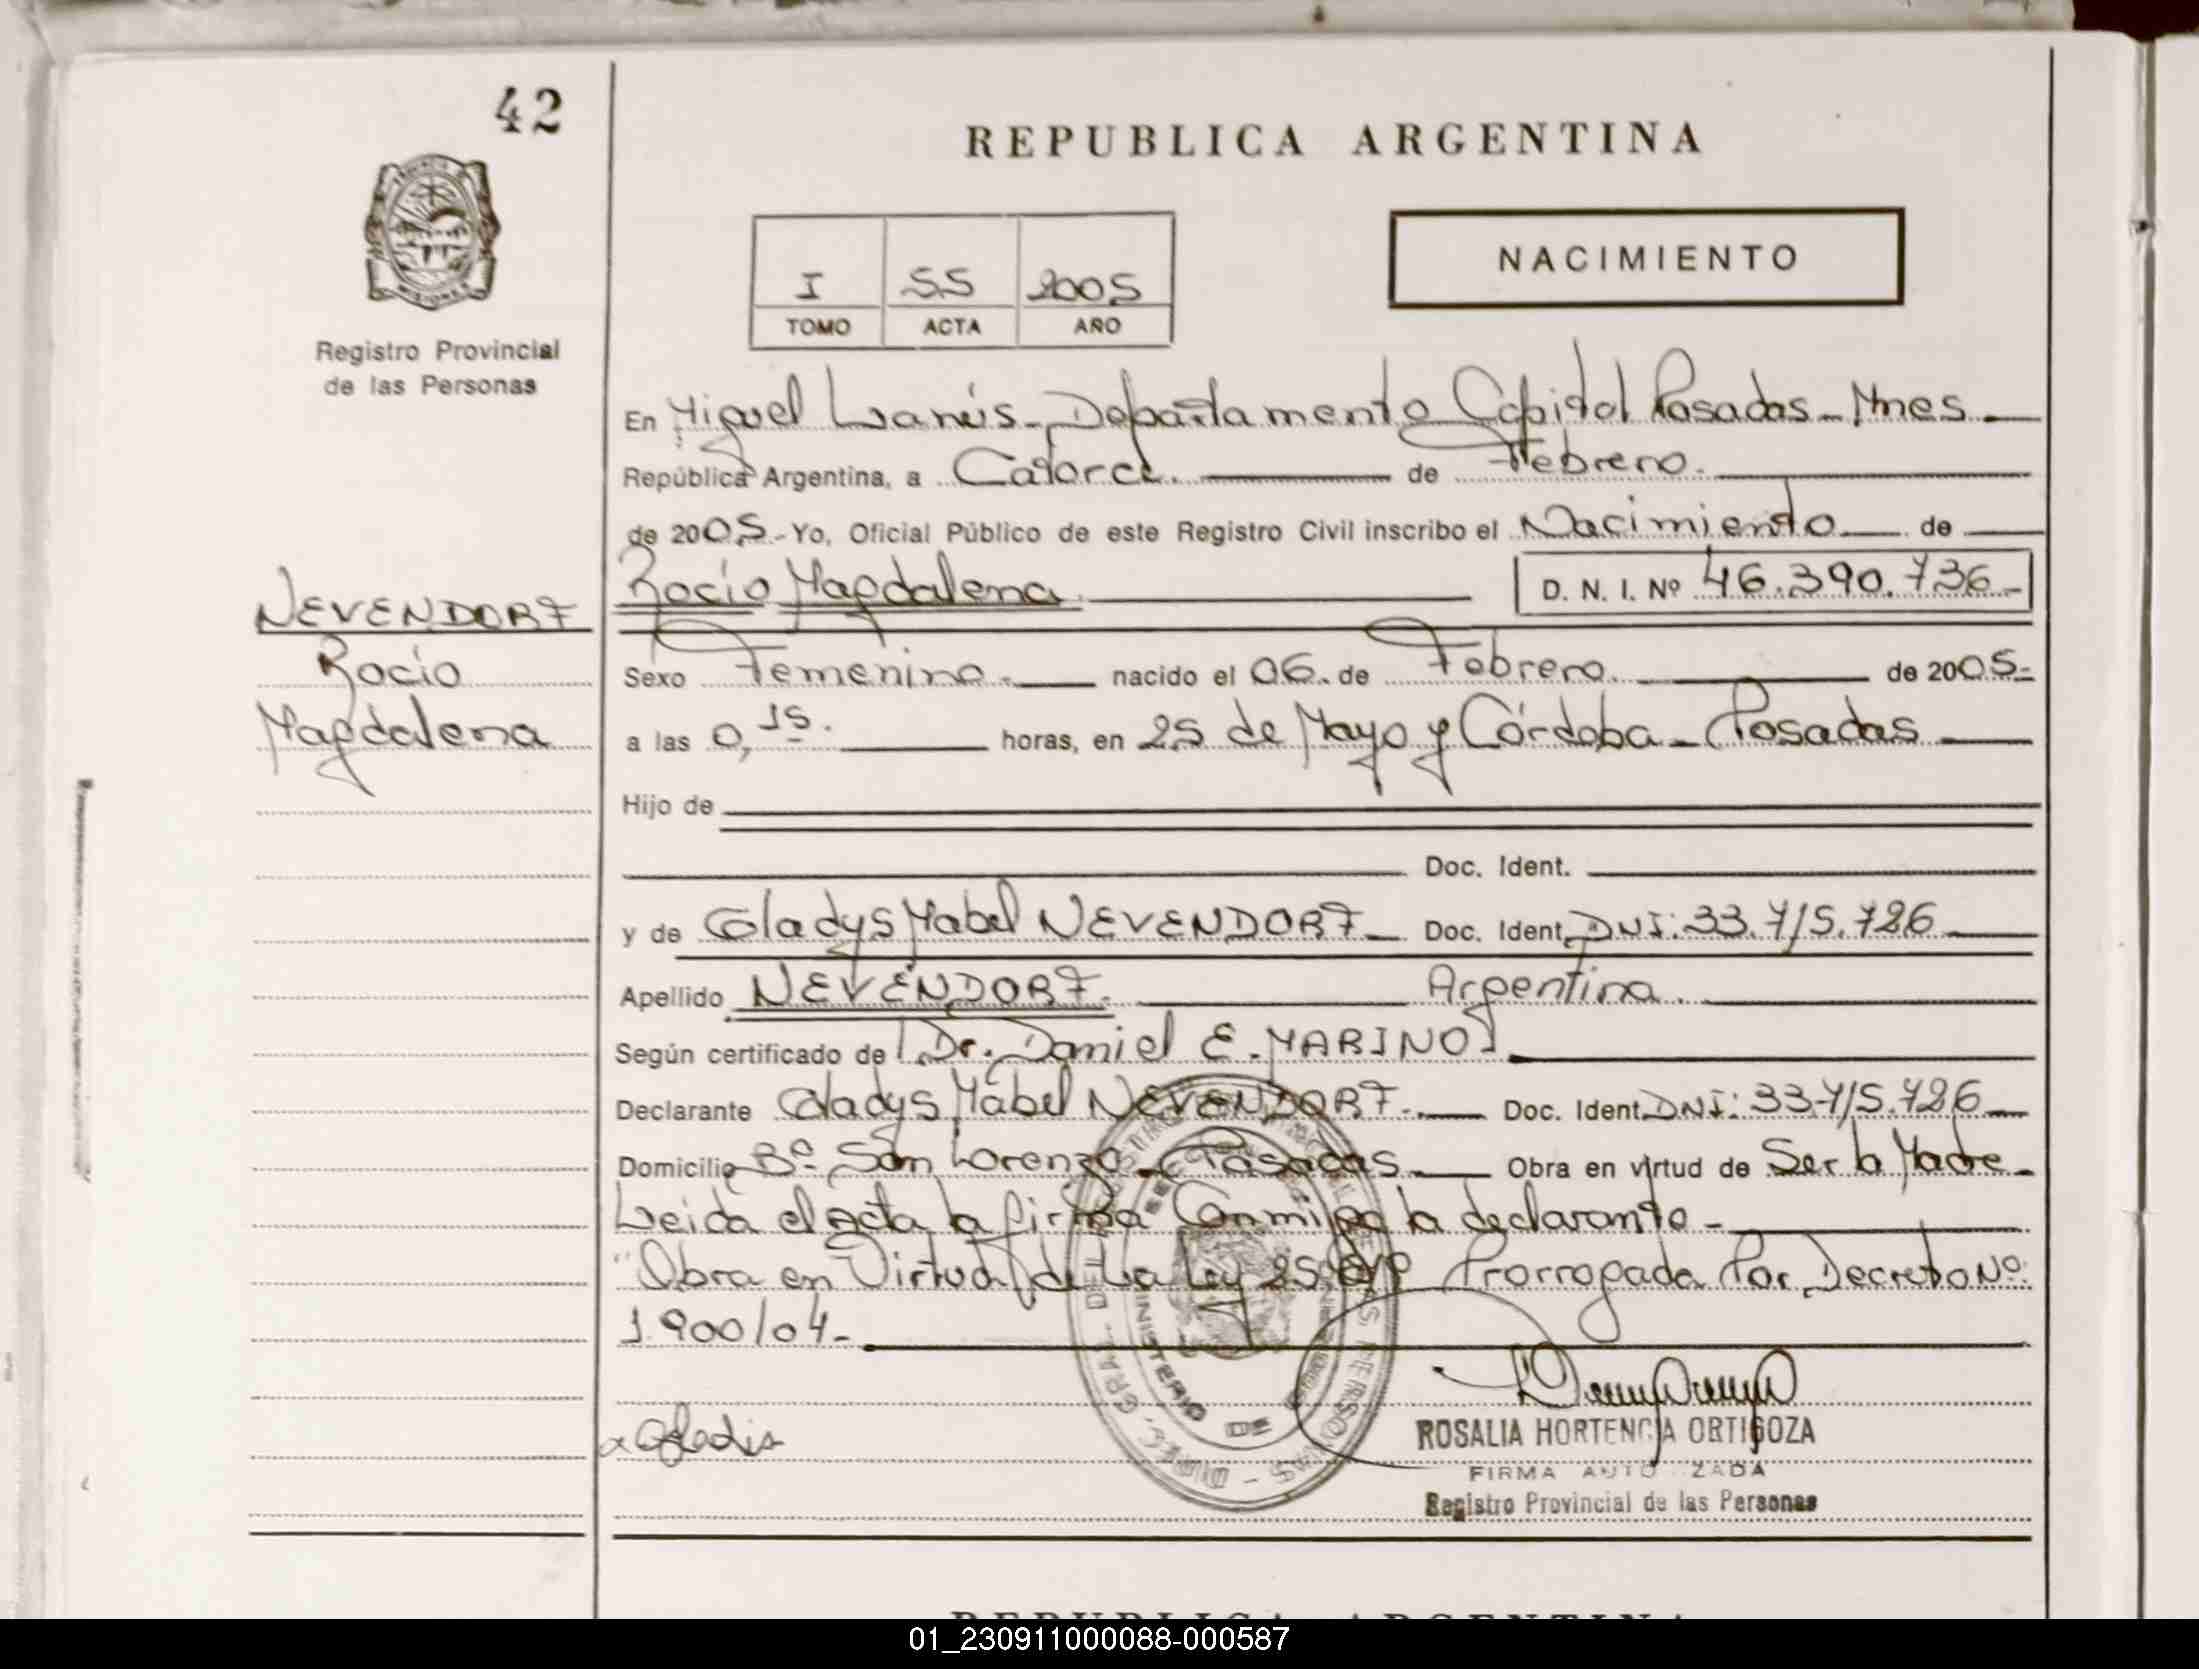 42
REPUBLICA ARGENTINA
NACIMIENTO
I 55 2005
TOMO ACTA AÑO
Registro Provincial
de las Personas
En Miguel Lanús - Departamento Capital Posadas - Mnes
República Argentina, a Catorce de Febrero.
de 2005.- Yo, Oficial Público de este Registro Civil inscribo el Nacimiento de
Rocío Magdalena D. N. I. Nº 46.390.736.-
NEVENDORF
Rocío
Magdalena
Sexo Femenino. nacido el 06. de Febrero. de 2005.-
a las 0,15. horas, en 25 de Mayo y Córdoba - Posadas
Hijo de
Doc. Ident.
y de Gladys Mabel NEVENDORF Doc. Ident. DNI: 33.715.726
Apellido NEVENDORF. Argentina.
Según certificado de Dr. Daniel E. MARINO
Declarante Gladys Mabel NEVENDORF.- Doc. Ident. DNI: 33.715.726
Domicilio Bº San Lorenzo - Posadas. Obra en virtud de Ser la Madre.
Leida el acta la firma Conmigo la declarante.-
"Obra en Virtud de La Ley Prorrogada Por Decreto Nº
1.900/04.-
Gladis
ROSALIA HORTENCIA ORTIGOZA
FIRMA AUTO ZADA
Registro Provincial de las Personas
REPUBLICA ARGENTINA
01_230911000088-000587